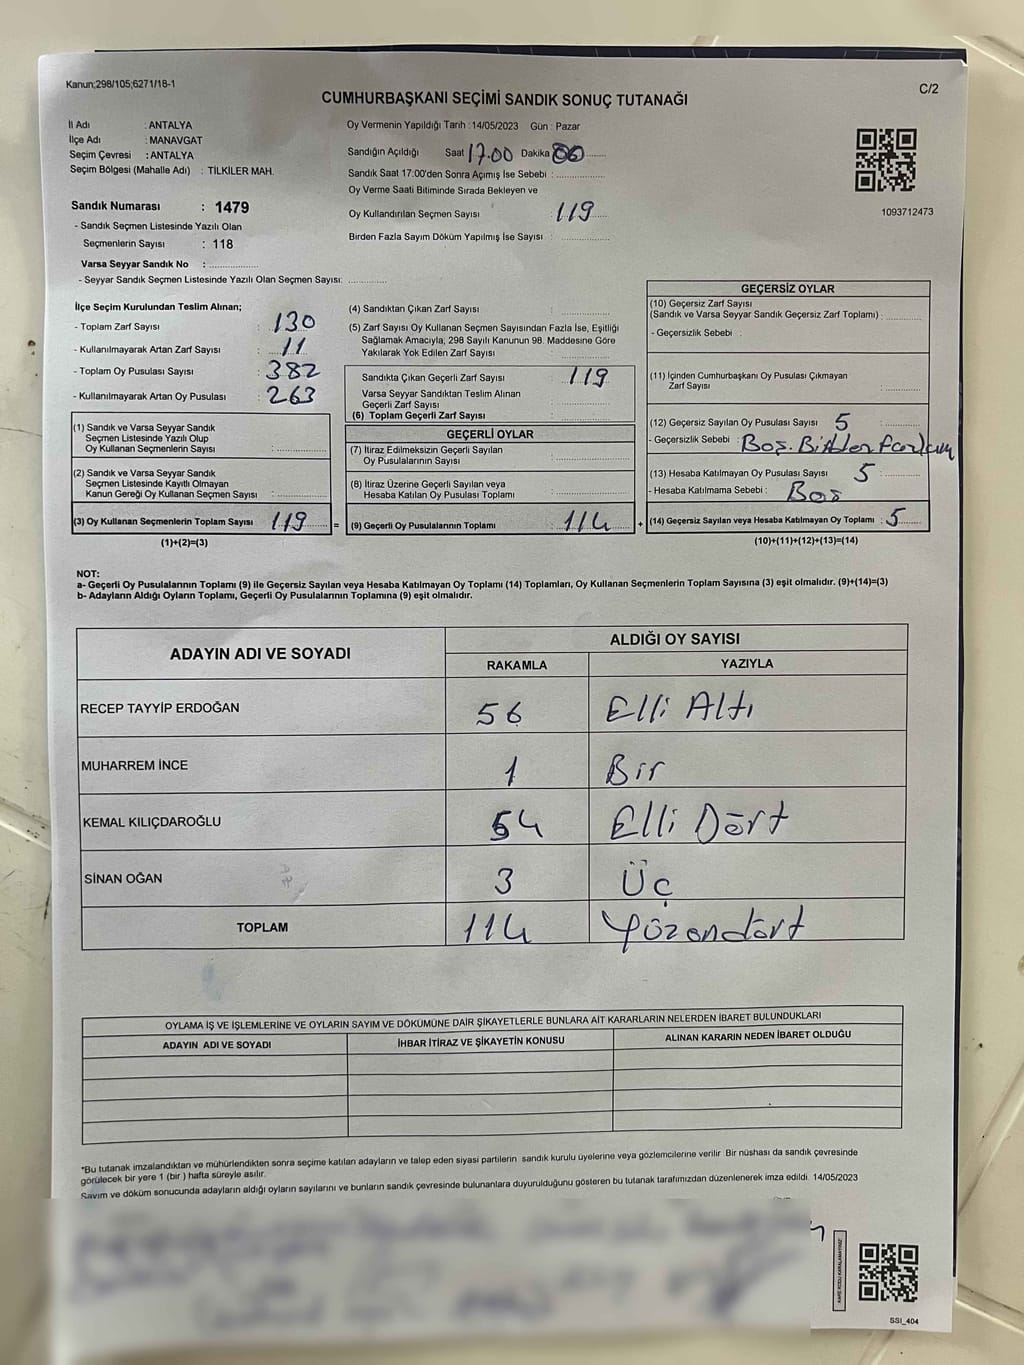 Kanun;298/105;6271/18-1
C/2
CUMHURBAŞKANI SEÇİMİ SANDIK SONUÇ TUTANAĞI
İl Adı : ANTALYA
İlçe Adı : MANAVGAT
Seçim Çevresi : ANTALYA
Seçim Bölgesi (Mahalle Adı) : TİLKİLER MAH.
Sandık Numarası : 1479
- Sandık Seçmen Listesinde Yazılı Olan
Seçmenlerin Sayısı : 118
Varsa Seyyar Sandık No : ..................
- Seyyar Sandık Seçmen Listesinde Yazılı Olan Seçmen Sayısı: ..............
Oy Vermenin Yapıldığı Tarih : 14/05/2023 Gün : Pazar
Sandığın Açıldığı Saat 17.00 Dakika 00
Sandık Saat 17:00'den Sonra Açımış İse Sebebi : ..................
Oy Verme Saati Bitiminde Sırada Bekleyen ve
Oy Kullandırılan Seçmen Sayısı : 119
Birden Fazla Sayım Döküm Yapılmış İse Sayısı : ..................
1093712473
İlçe Seçim Kurulundan Teslim Alınan;
- Toplam Zarf Sayısı : 130
- Kullanılmayarak Artan Zarf Sayısı : 11
- Toplam Oy Pusulası Sayısı : 382
- Kullanılmayarak Artan Oy Pusulası : 263
(1) Sandık ve Varsa Seyyar Sandık
Seçmen Listesinde Yazılı Olup
Oy Kullanan Seçmenlerin Sayısı : ..................
(2) Sandık ve Varsa Seyyar Sandık
Seçmen Listesinde Kayıtlı Olmayan
Kanun Gereği Oy Kullanan Seçmen Sayısı : ..................
(3) Oy Kullanan Seçmenlerin Toplam Sayısı : 119 =
(1)+(2)=(3)
(4) Sandıktan Çıkan Zarf Sayısı : ..................
(5) Zarf Sayısı Oy Kullanan Seçmen Sayısından Fazla İse, Eşitliği
Sağlamak Amacıyla; 298 Sayılı Kanunun 98. Maddesine Göre
Yakılarak Yok Edilen Zarf Sayısı : ..................
Sandıkta Çıkan Geçerli Zarf Sayısı : 119
Varsa Seyyar Sandıktan Teslim Alınan
Geçerli Zarf Sayısı : ..................
(6) Toplam Geçerli Zarf Sayısı : ..................
GEÇERLİ OYLAR
(7) İtiraz Edilmeksizin Geçerli Sayılan
Oy Pusulalarının Sayısı : ..................
(8) İtiraz Üzerine Geçerli Sayılan veya
Hesaba Katılan Oy Pusulası Toplamı : ..................
(9) Geçerli Oy Pusulalarının Toplamı : 114 +
GEÇERSİZ OYLAR
(10) Geçersiz Zarf Sayısı
(Sandık ve Varsa Seyyar Sandık Geçersiz Zarf Toplamı) : ..................
- Geçersizlik Sebebi :
(11) İçinden Cumhurbaşkanı Oy Pusulası Çıkmayan
Zarf Sayısı : ..................
(12) Geçersiz Sayılan Oy Pusulası Sayısı : 5
- Geçersizlik Sebebi : Boş.
(13) Hesaba Katılmayan Oy Pusulası Sayısı : 5
- Hesaba Katılmama Sebebi : Boş
(14) Geçersiz Sayılan veya Hesaba Katılmayan Oy Toplamı : 5
(10)+(11)+(12)+(13)=(14)
NOT:
a- Geçerli Oy Pusulalarının Toplamı (9) ile Geçersiz Sayılan veya Hesaba Katılmayan Oy Toplamı (14) Toplamları, Oy Kullanan Seçmenlerin Toplam Sayısına (3) eşit olmalıdır. (9)+(14)=(3)
b- Adayların Aldığı Oyların Toplamı, Geçerli Oy Pusulalarının Toplamına (9) eşit olmalıdır.
ADAYIN ADI VE SOYADI ALDIĞI OY SAYISI
RAKAMLA YAZIYLA
RECEP TAYYİP ERDOĞAN 56 Elli Altı
MUHARREM İNCE 1 Bir
KEMAL KILIÇDAROĞLU 54 Elli Dört
SİNAN OĞAN 3 Üç
TOPLAM 114 Yüzondört
OYLAMA İŞ VE İŞLEMLERİNE VE OYLARIN SAYIM VE DÖKÜMÜNE DAİR ŞİKAYETLERLE BUNLARA AİT KARARLARIN NELERDEN İBARET BULUNDUKLARI
ADAYIN ADI VE SOYADI İHBAR İTİRAZ VE ŞİKAYETİN KONUSU ALINAN KARARIN NEDEN İBARET OLDUĞU
*Bu tutanak imzalandıktan ve mühürlendikten sonra seçime katılan adayların ve talep eden siyasi partilerin sandık kurulu üyelerine veya gözlemcilerine verilir Bir nüshası da sandık çevresinde
görülecek bir yere 1 (bir ) hafta süreyle asılır.
Sayım ve döküm sonucunda adayların aldığı oyların sayılarını ve bunların sandık çevresinde bulunanlara duyurulduğunu gösteren bu tutanak tarafımızdan düzenlenerek imza edildi. 14/05/2023
SSI_404